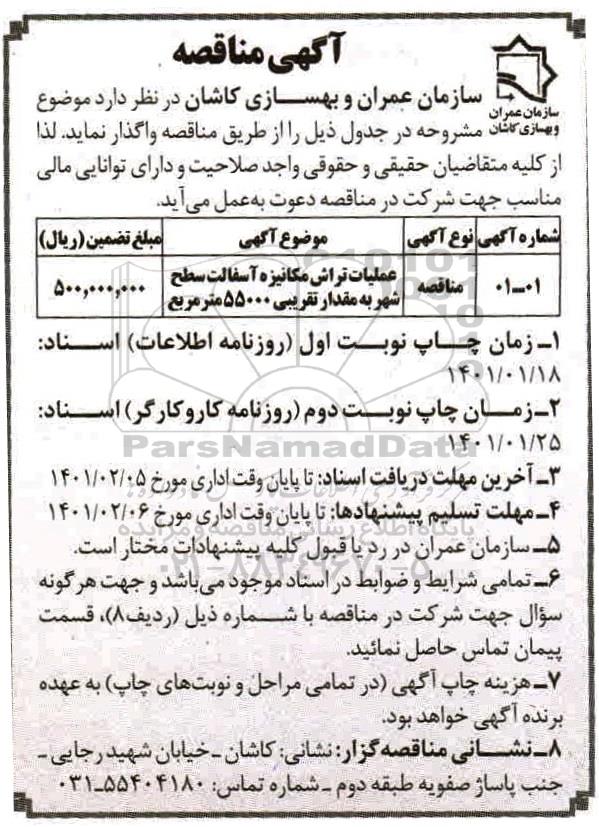 آگهی مناقصه
سازمان عمران
و بهسازی کاشان
سازمان عمران و بهسازی کاشان در نظر دارد موضوع
مشروحه در جدول ذیل را از طریق مناقصه واگذار نماید. لذا
از کلیه متقاضیان حقیقی و حقوقی واجد صلاحیت و دارای توانایی مالی
مناسب جهت شرکت در مناقصه دعوت به‌عمل می‌آید.
شماره آگهی نوع آگهی موضوع آگهی مبلغ تضمین (ریال)
۰۱-۰۱ مناقصه عملیات تراش مکانیزه آسفالت سطح شهر به مقدار تقریبی ۵۵۰۰۰ مترمربع ۵۰۰,۰۰۰,۰۰۰
۱ـ زمان چاپ نوبت اول (روزنامه اطلاعات) اسناد:
۱۴۰۱/۰۱/۱۸
۲ـ زمان چاپ نوبت دوم (روزنامه کار و کارگر) اسناد:
۱۴۰۱/۰۱/۲۵
۳ـ آخرین مهلت دریافت اسناد: تا پایان وقت اداری مورخ ۱۴۰۱/۰۲/۰۵
۴ـ مهلت تسلیم پیشنهادها: تا پایان وقت اداری مورخ ۱۴۰۱/۰۲/۰۶
۵ـ سازمان عمران در رد یا قبول کلیه پیشنهادات مختار است.
۶ـ تمامی شرایط و ضوابط در اسناد موجود می‌باشد و جهت هرگونه
سؤال جهت شرکت در مناقصه با شماره ذیل (ردیف۸)، قسمت
پیمان تماس حاصل نمائید.
۷ـ هزینه چاپ آگهی (در تمامی مراحل و نوبت‌های چاپ) به عهده
برنده آگهی خواهد بود.
۸ـ نشانی مناقصه‌گزار: نشانی: کاشان ـ خیابان شهید رجایی ـ
جنب پاساژ صفویه طبقه دوم ـ شماره تماس: ۵۵۴۰۴۱۸۰-۰۳۱
ParsNamadData
پایگاه اطلاع رسانی مناقصه و مزایده
۰۲۱-۸۸۳۴۹۶۷۰-۵